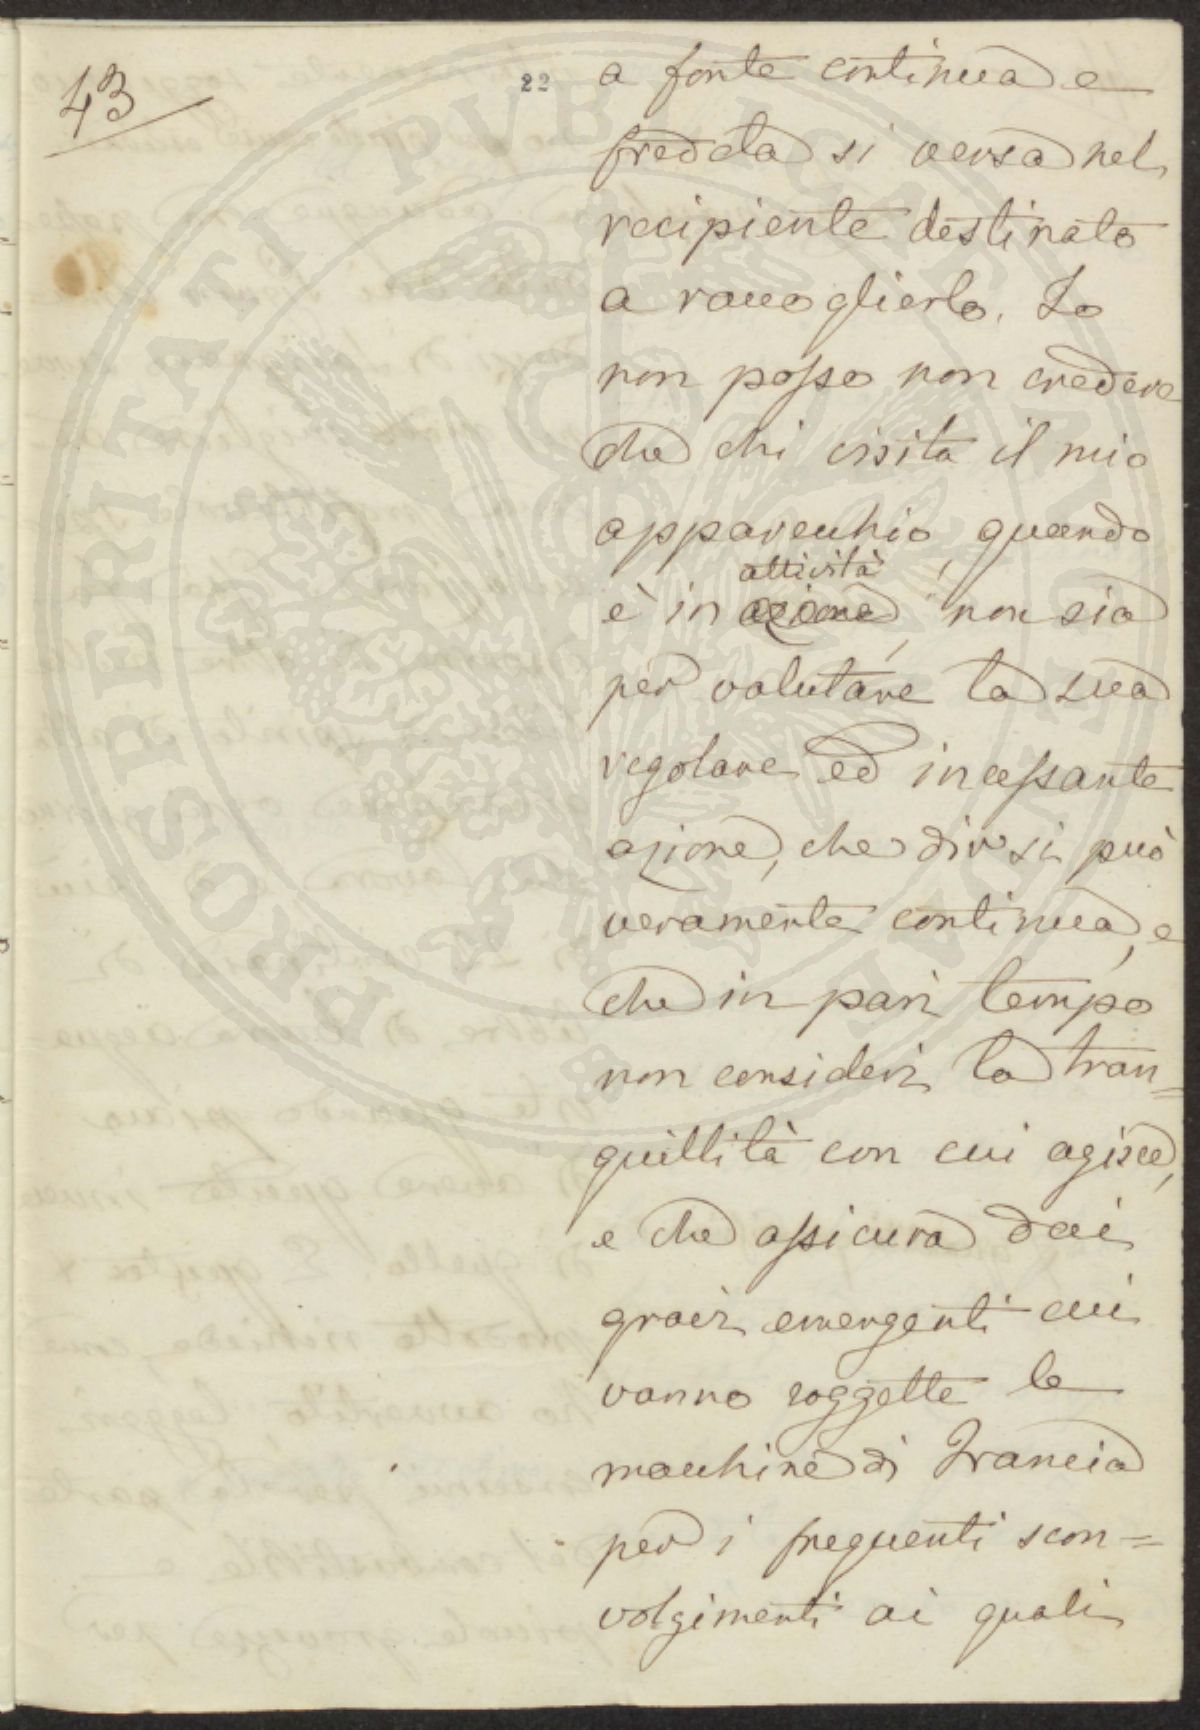 43
22
a fonte continua e
fredda si versa nel
recipiente destinato
a raccoglierlo. Io
non posso non credere
che chi visita il mio
apparecchio, quando
attività
è in azione, non sia
per valutare la sua
regolare ed incessante
azione, che dir si può
veramente continua, e
che in pari tempo
non consideri la tran=
quillità con cui agisce,
e che assicura dai
gravi emergenti cui
vanno soggette le
macchine di Francia
per i frequenti scon=
volgimenti ai quali
PROSPERITATI PVBLICAE AVGENDAE